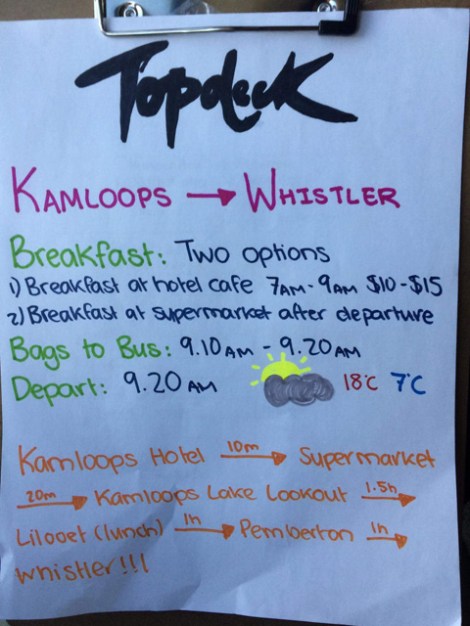 Topdeck
KAMLOOPS → WHISTLER
Breakfast: Two options
1) Breakfast at hotel cafe 7AM-9AM $10-$15
2) Breakfast at supermarket after departure
Bags to Bus: 9.10AM - 9.20AM
Depart: 9.20AM 18°C 7°C
Kamloops Hotel 10m → Supermarket
20m → Kamloops Lake Lookout 1.5h →
Lilooet (lunch) 1h → Pemberton 1h →
Whistler!!!